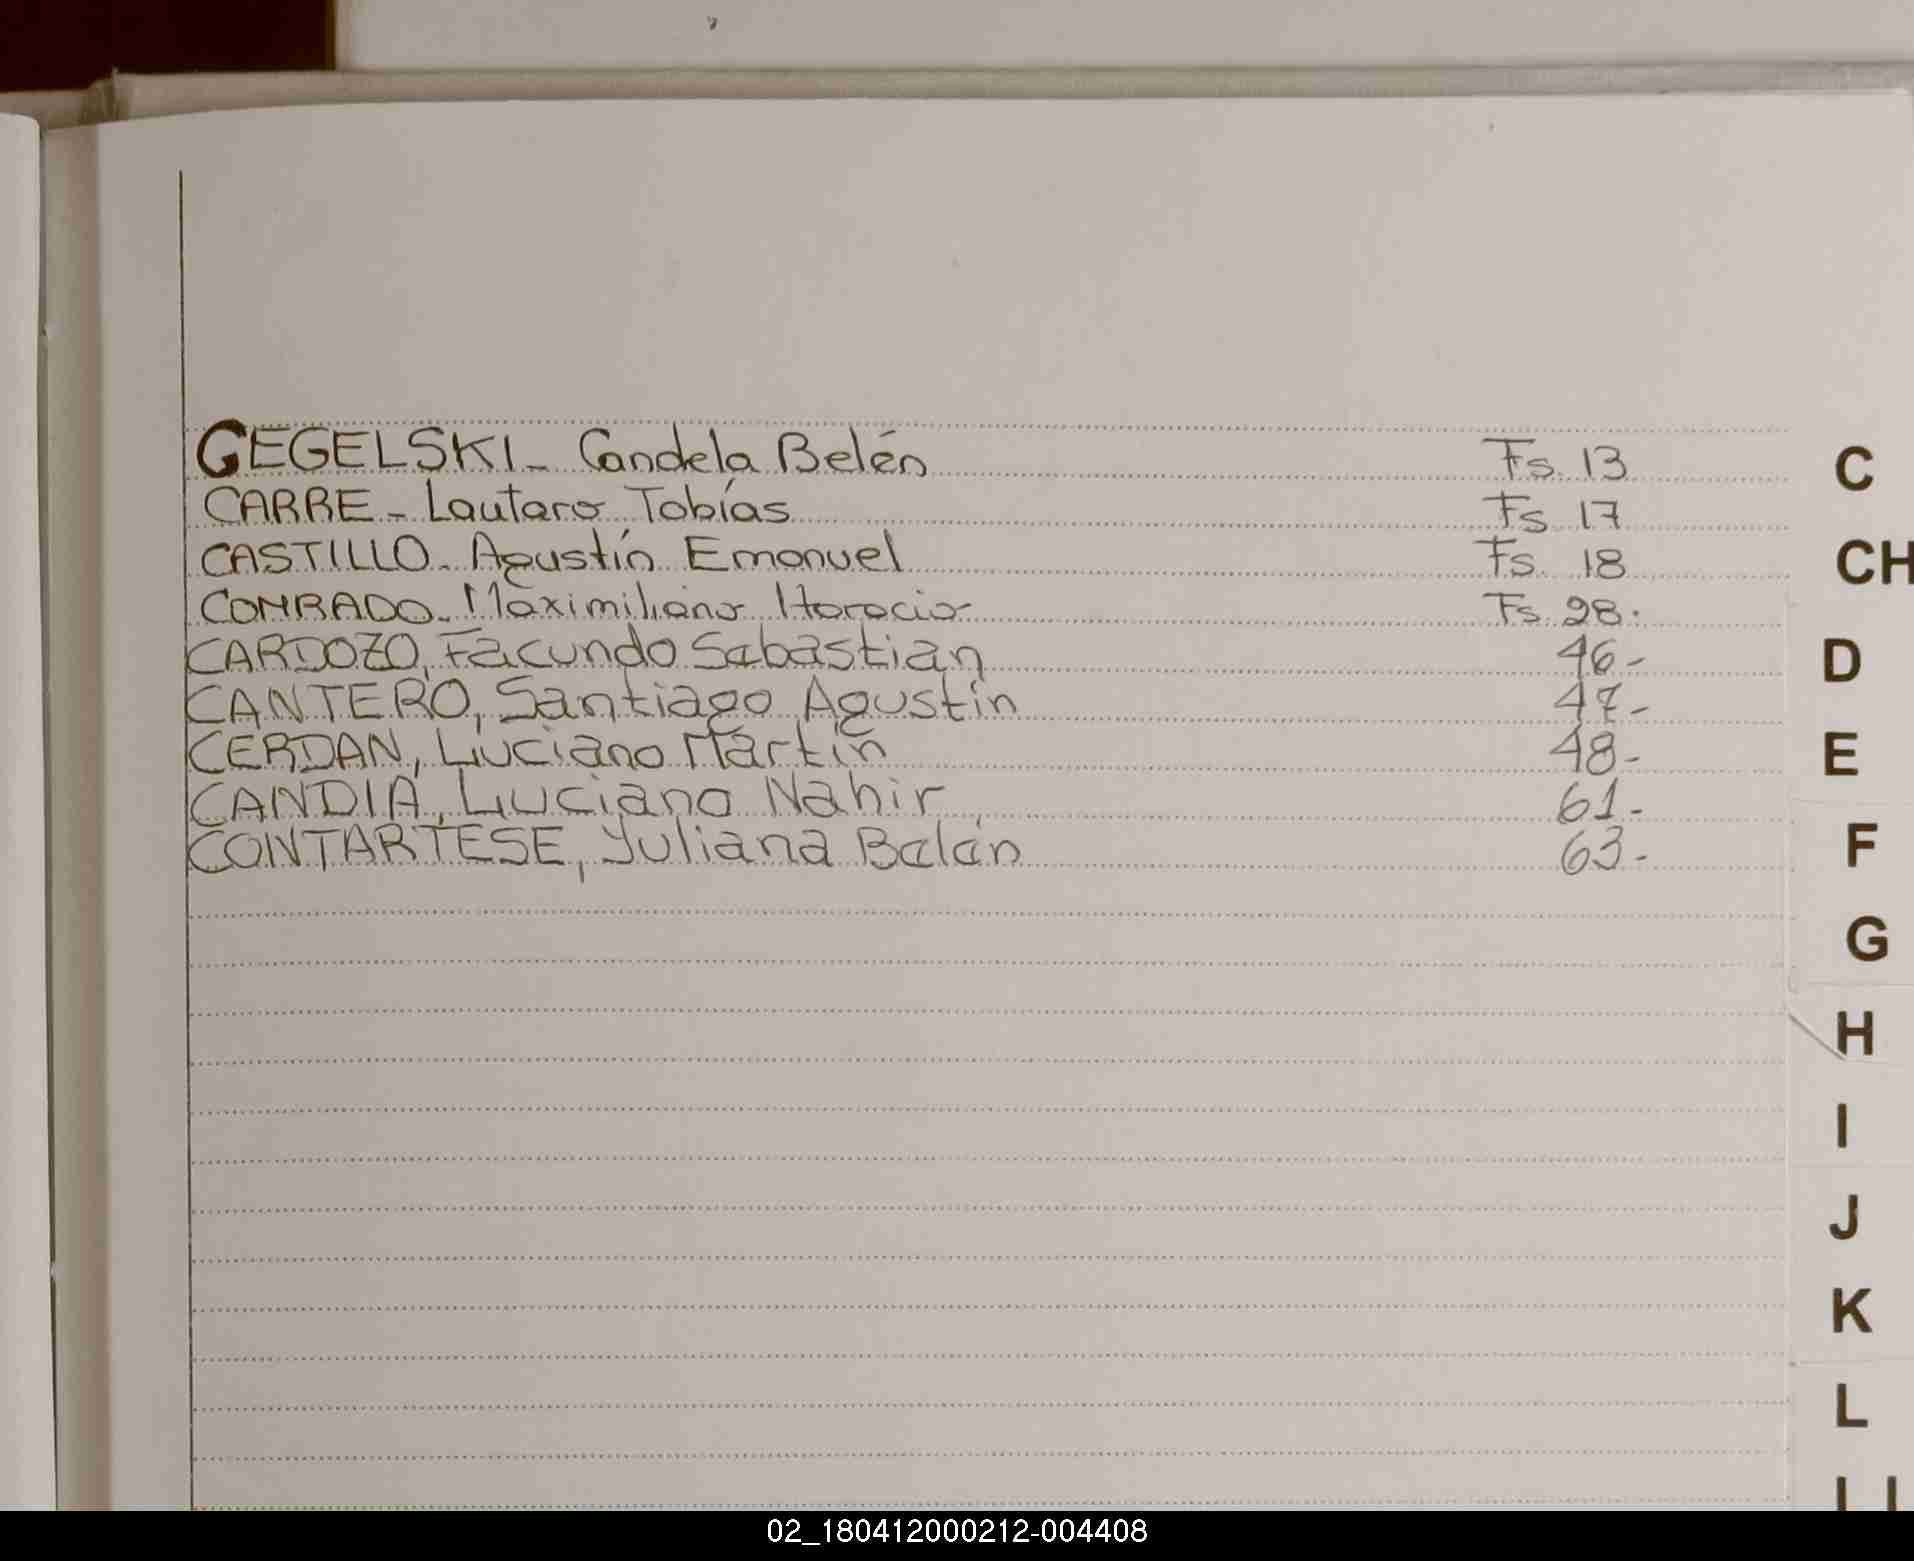 CEGELSKI - Candela Belén Fs. 13
CARRE - Lautaro Tobías Fs 17
CASTILLO - Agustín Emanuel Fs. 18
CONRADO - Maximiliano Horacio Fs. 28.
CARDOZO, Facundo Sebastian 46-
CANTERO, Santiago Agustín 47-
CERDAN, Luciano Martín 48-
CANDIA, Luciano Nahir 61-
CONTARTESE, Yuliana Belén 63-
C
CH
D
E
F
G
H
I
J
K
L
02_180412000212-004408